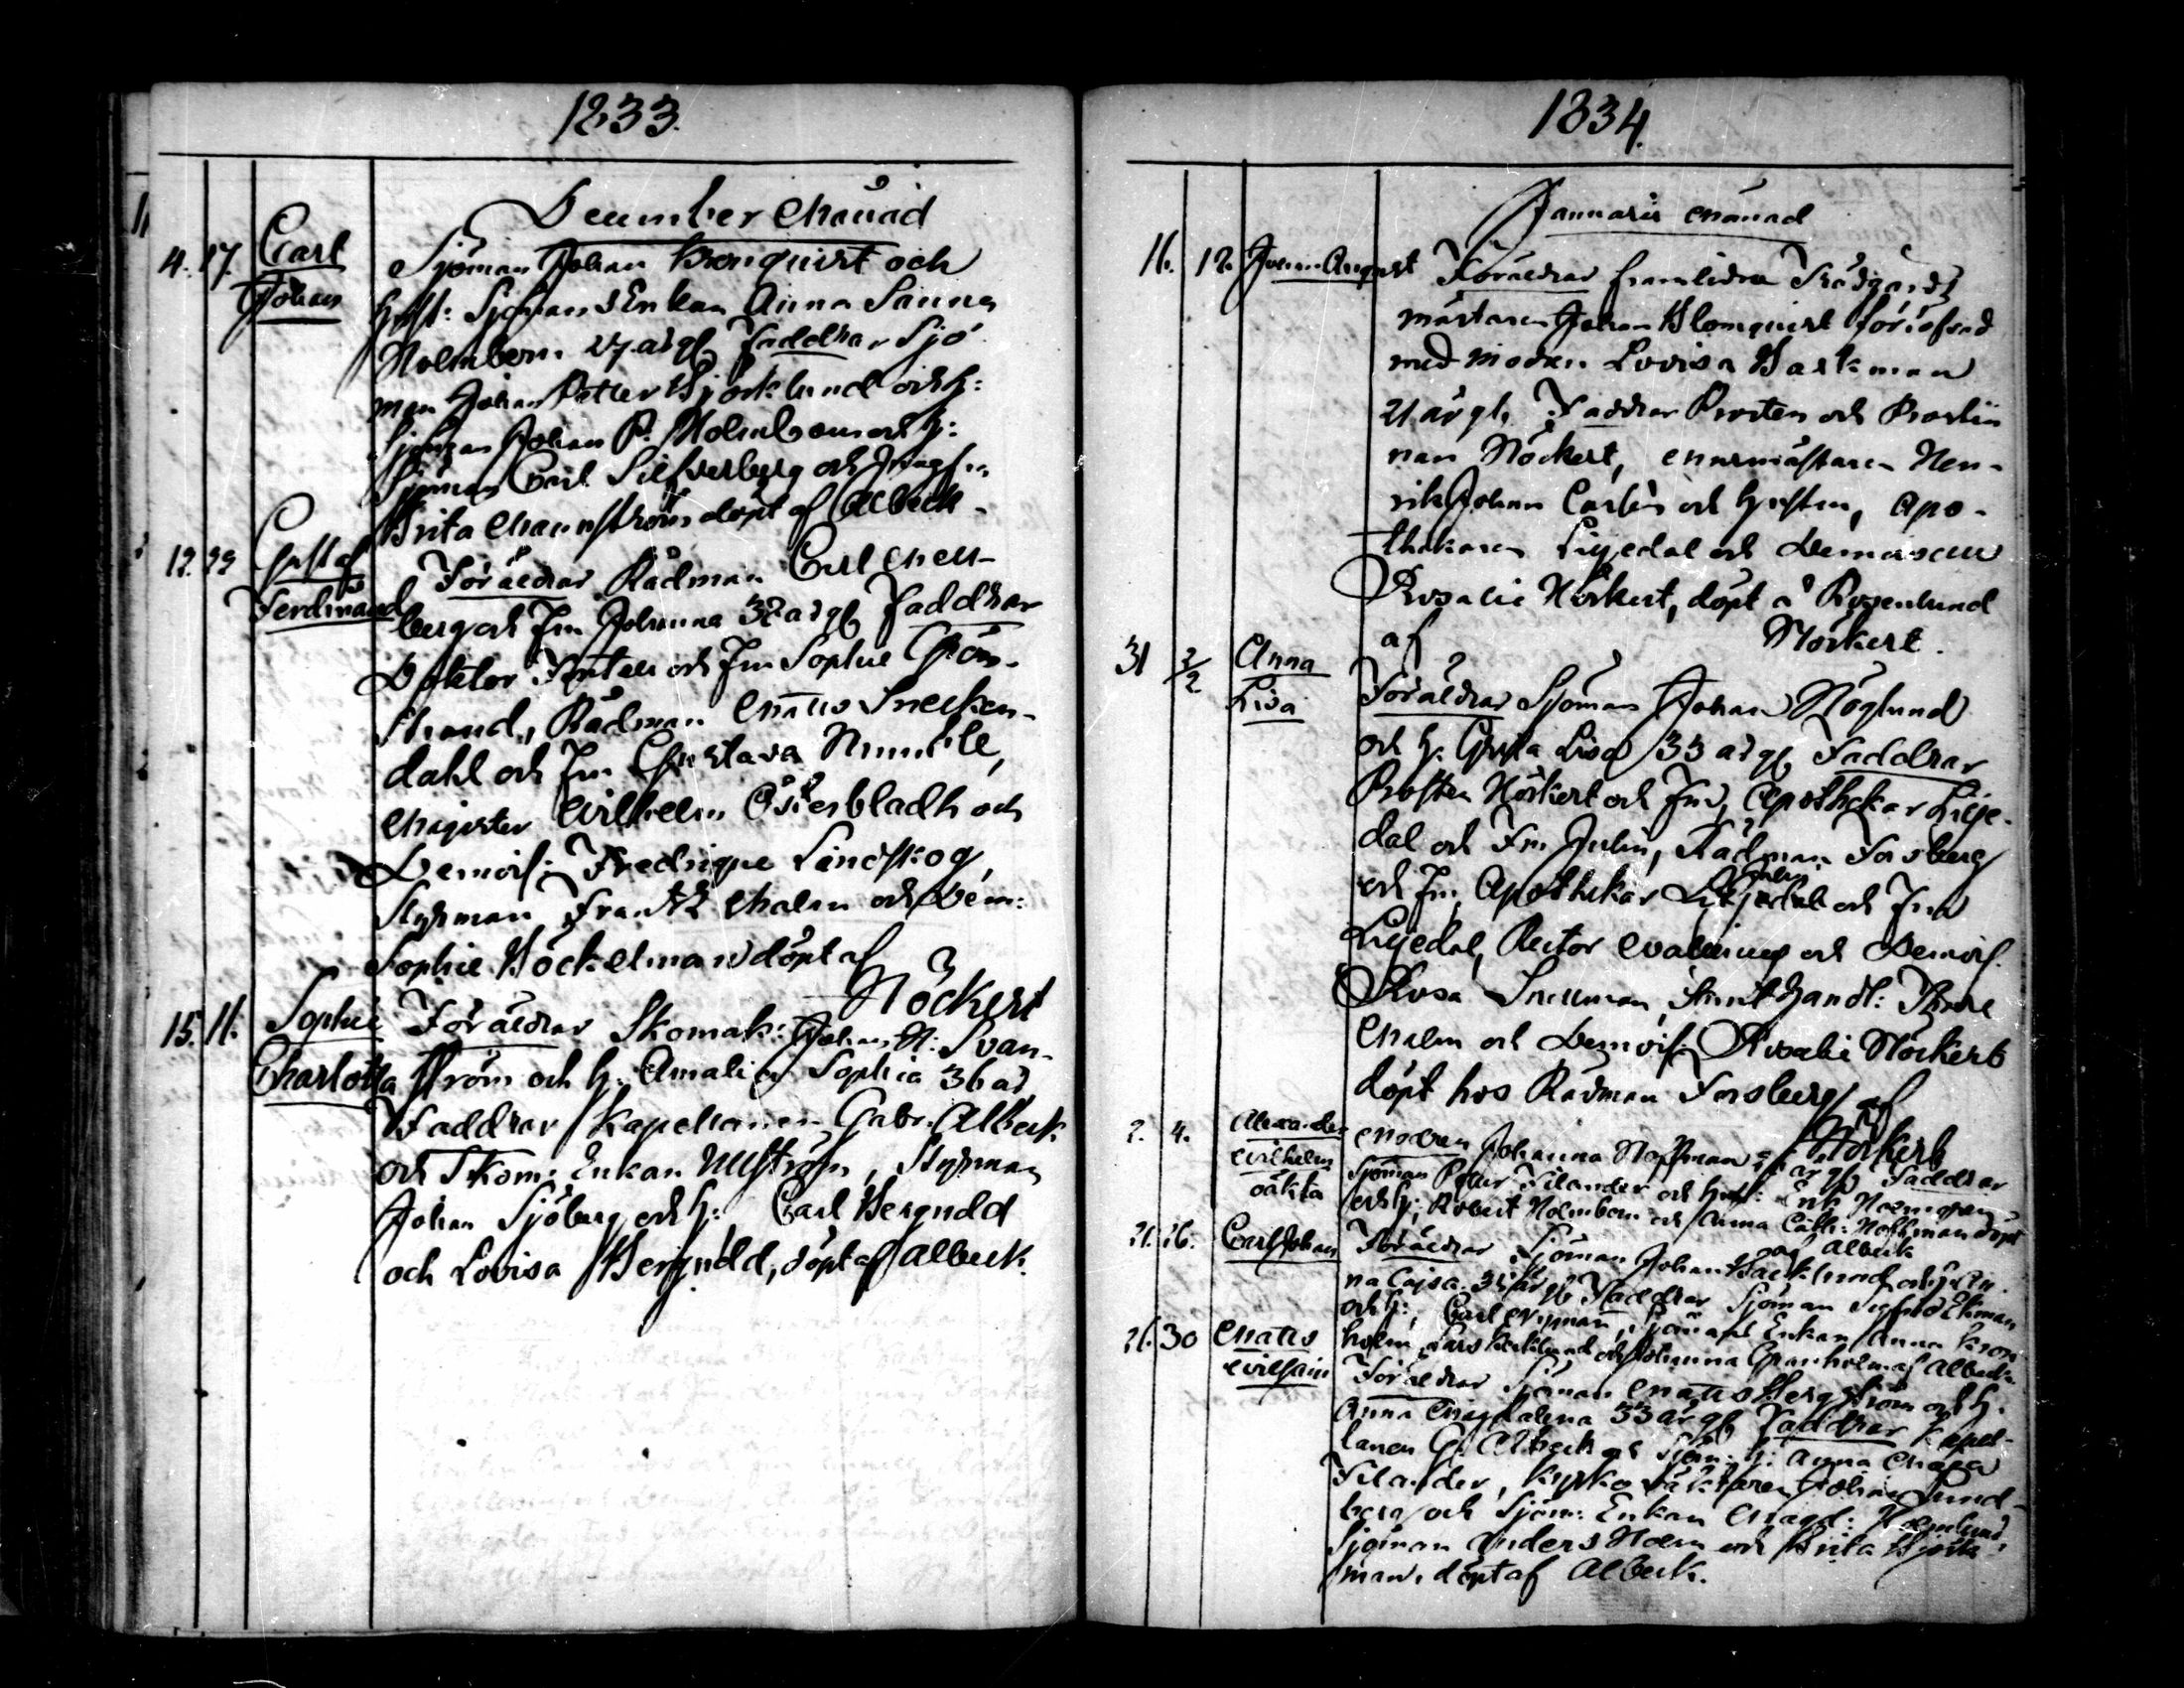 1833.
December Månad
4. 17. Carl Johan
Sjöman Johan Kronquist och
hust: Sjömans Enkan Anna Sanna
Holmbom 27 år gl Faddrar Sjö
man Johan Petter Björklund och h:
Sjöman Johan P. Holmbom och h:
Sjöman Carl Silfverberg och Jungfru
Brita Malmström döpt af Albeck.
12. 29 Gustaf Ferdinand
Föräldrar Rådman Carl Mell-
berg och Fru Johanna 32 år gl Faddrar
Doktor och Fru Sophie Grön-
strand, Rådman Matts Snecken-
dahl och Fru Gustava
Magister Wilhelm Österbladh och
Demois: Fredrique Lindskog,
Styrman Frantz Malm och Dem:
Sophie Böckelman döpt af
Nöckert
15. 11. Sophie Charlotta
Föräldrar Skomak: Johan H: Svan-
ström och h: Amalia Sophia 36 år
Faddrar Kapellanen Gabr. Albeck
och Skom: Enkan Ullström, Styrman
Johan Sjöberg och h: Carl Bergudd
och Lovisa Bergudd, döpt af Albeck.
1834.
Januarii Månad
11. 12. Johan August
Föräldrar framlidna Trädgårds
mästaren Johan Blomquist förlofvad
med modren Lovisa Backman
21 år gl, Faddrar Prosten och Prostin
nan Nöckert, Murmästaren Hen-
rik Johan Carlén och hustru, Apo-
thekaren Liljedal och Demoiselle
Rosalie Nöckert, döpt å Rosenlund
af Nöckert.
31 2/2 Anna Lisa
Föräldrar Sjöman Johan Höglund
och h: Greta Lisa 33 år gl Faddrar
Prosten Nöckert och Fru, Apothekar Lilje-
dal och Fru Julin, Rådman Forsberg
och Fru, Apothekar Julin och Fru
Liljedal, Rector Wallenius och Demois.
Rosa Snellman, Handl:
Malm och Demois: Rosalie Nöckert
döpt hos Rådman Forsberg af
Nöckert
2. 4. Alexander Wilhelm oäkta
Modren Johanna Hoffman år gl Faddrar
Sjöman Petter Filander och hust: Enk Holmgren
och h: Robert Holmbom och Anna Cath: Hoffman döpt
af Albeck
21. 26. Carl Johan
Föräldrar Sjöman Johan Backlund och h: An
na Cajsa 35 år gl Faddrar Sjöman Sigfrid Ekman
och h:, Carl Nyman, Sjömans Enkan Anna Kron
holm, Lars Backlund och Johanna Granholm af Albeck
26. 30 Matts Wilhelm
Föräldrar Sjöman Matts Bergström och h.
Anna Magdalena 33 år gl Faddrar Kapel-
lanen G. Albeck och Sjöm: h: Anna Maja
Filander, Kyrko Johan Sund-
berg och Sjöm: Enkan Magd:
Sjöman Anders Holm och Brita Björk-
man, döpt af Albeck.